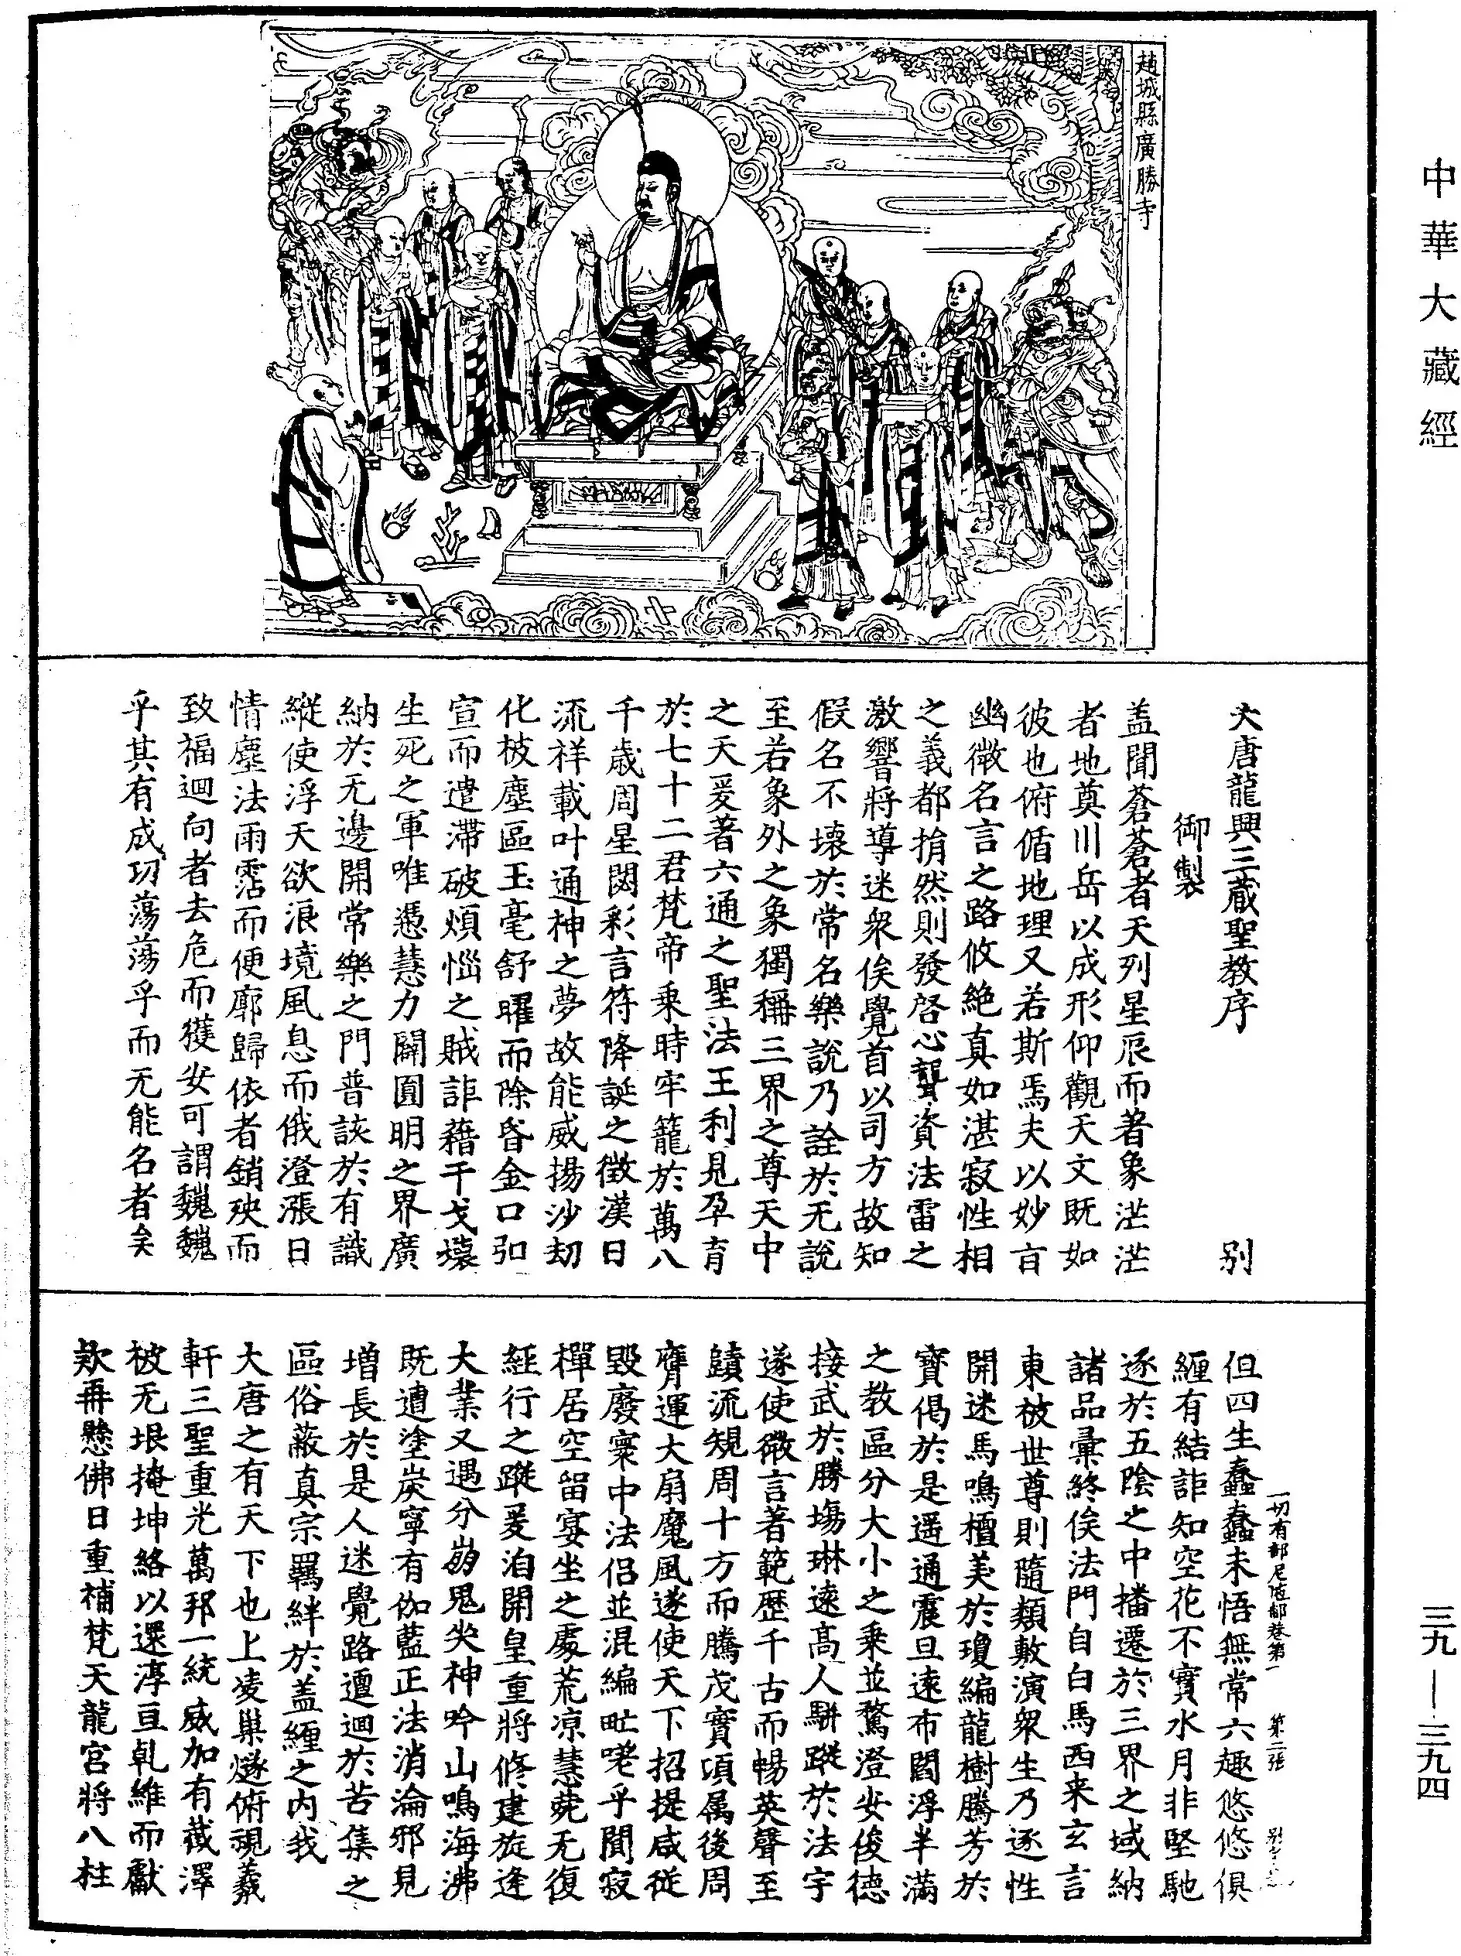 中華大藏經
趙城縣廣勝寺
大唐龍興三藏聖教序 别
御製
盖聞蒼蒼者天列星辰而著象茫茫
者地奠川岳以成形仰觀天文既如
彼也俯循地理又若斯焉夫以妙旨
幽微名言之路攸絶真如湛寂性相
之義都捐然則發啓心聾資法雷之
激響將導迷衆俟覺首以司方故知
假名不壞於常名樂說乃詮於无說
至若象外之象獨稱三界之尊天中
之天爰著六通之聖法王利見孕育
於七十二君梵帝乘時牢籠於萬八
千歲周星閟彩言符降誕之徵漢日
流祥載叶通神之夢故能威揚沙刧
化被塵區玉毫舒曜而除昏金口弘
宣而遣滯破煩惱之賊詎藉干戈壊
生死之軍唯憑慧力闢圓明之界廣
納於无邊開常樂之門普該於有識
縱使浮天欲浪境風息而俄澄漲日
情塵法雨霑而便廓歸依者銷殃而
致福迴向者去危而獲安可謂巍巍
乎其有成功蕩蕩乎而无能名者矣
一切有部尼陁那卷第一 第二張
但四生蠢蠢未悟無常六趣悠悠俱
纏有結詎知空花不實水月非堅馳
逐於五陰之中播遷於三界之域納
諸品彙終俟法門自白馬西来玄言
東被世尊則隨類敷演衆生乃逐性
開迷馬鳴擅美於瓊編龍樹騰芳於
寶偈於是遥通震旦遠布閻浮半滿
之教區分大小之乘並騖澄安俊德
接武於勝塲琳遠高人駢蹤於法宇
遂使微言著範歷千古而暢英聲至
賾流規周十方而騰茂實項属後周
膺運大扇魔風遂使天下招提咸從
毀廢寰中法侶並混編甿嘊乎聞寂
禪居空留宴坐之處荒凉慧菀无復
經行之蹤爰洎開皇重將修建旋逢
大業又遇分崩鬼哭神吟山鳴海沸
既遭塗炭寧有伽藍正法消淪邪見
增長於是人迷覺路邅迴於苦集之
區俗蔽真宗羈絆於盖纏之内我
大唐之有天下也上凌巢燧俯視羲
軒三聖重光萬邦一統威加有截澤
被无垠掩坤絡以還淳亘乹維而獻
欵再懸佛日重補梵天龍宫將八柱
三九—三九四